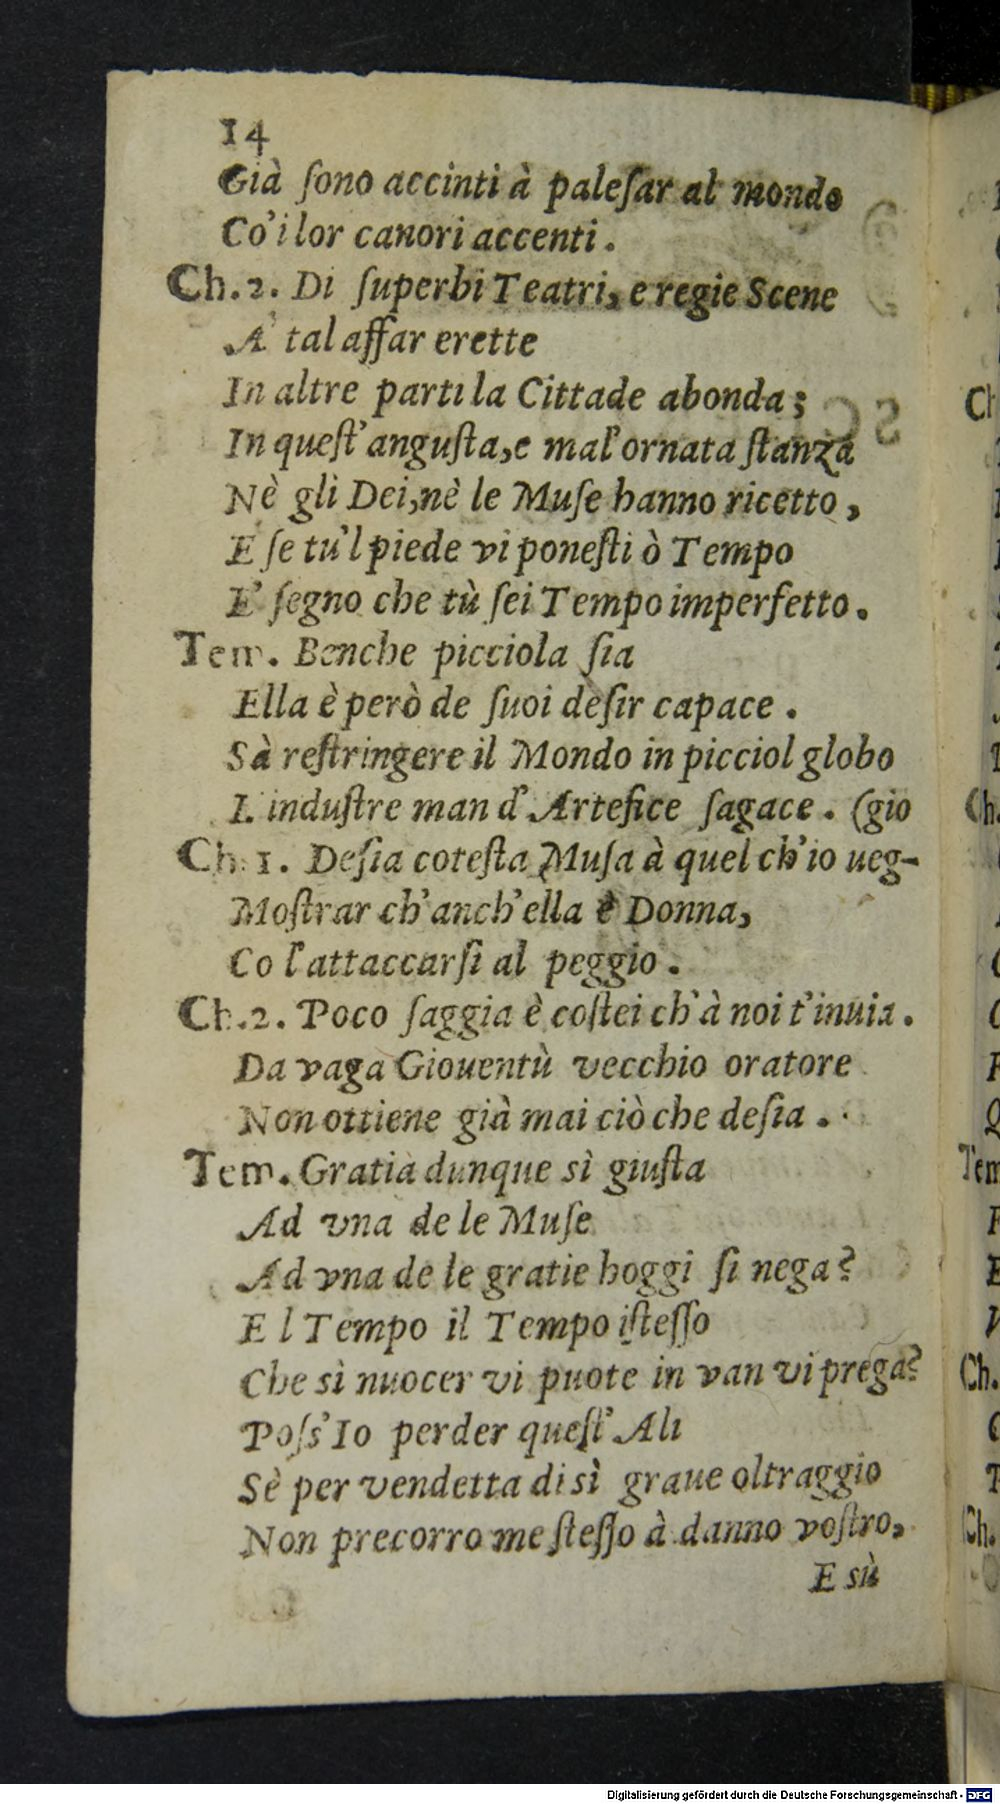 14
Già ſono accinti à paleſar al mondo
Co'i lor canori accenti.
Ch. 2. Di ſuperbi Teatri, e regie Scene
A' tal affar erette
In altre parti la Cittade abonda;
In queſt'anguſta, e mal'ornata ſtanza
Nè gli Dei, nè le Muſe hanno ricetto,
E ſe tu'l piede vi poneſti ò Tempo
E' ſegno che tù ſei Tempo imperfetto.
Tem. Benche picciola ſia
Ella è però de ſuoi deſir capace.
Sà reſtringere il Mondo in picciol globo
L'induſtre man d'Artefice ſagace. (gio
Ch. 1. Deſia coteſta Muſa à quel ch'io ueg-
Moſtrar ch'anch'ella è Donna,
Co l'attaccarſi al peggio.
Ch. 2. Poco ſaggia è coſtei ch'à noi t'inuia.
Da vaga Giouentù vecchio oratore
Non ottiene già mai ciò che deſia.
Tem. Gratia dunque sì giuſta
Ad vna de le Muſe
Ad vna de le gratie hoggi ſi nega?
E l Tempo il Tempo iſteſſo
Che sì nuocer vi puote in van vi prega?
Poſs'Io perder queſt'Ali
Sè per vendetta di sì graue oltraggio
Non precorro me ſteſſo à danno voſtro,
E sù
Ch
Ch.
Tem
Ch.
Ch.
Digitalisierung gefördert durch die Deutsche Forschungsgemeinschaft - DFG